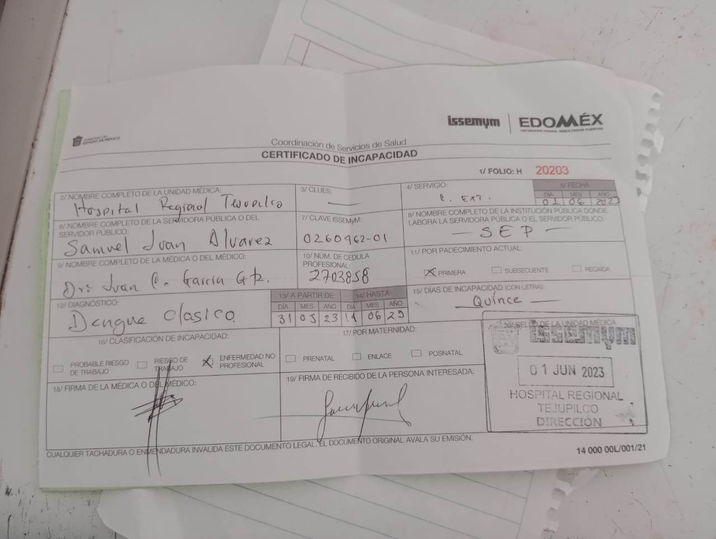 issemym | EDOMÉX
Coordinación de Servicios de Salud
CERTIFICADO DE INCAPACIDAD
1/ FOLIO: H 20203
2/ NOMBRE COMPLETO DE LA UNIDAD MÉDICA:
Hospital Regional Tejupilco
3/ CLUES:
4/ SERVICIO:
5/ FECHA
DÍA MES AÑO
01 06 2023
6/ NOMBRE COMPLETO DE LA SERVIDORA PÚBLICA O DEL SERVIDOR PÚBLICO:
Samuel Juan Alvarez
7/ CLAVE ISSEMYM:
0260962-01
8/ NOMBRE COMPLETO DE LA INSTITUCIÓN PÚBLICA DONDE LABORA LA SERVIDORA PÚBLICA O EL SERVIDOR PÚBLICO:
— SEP —
9/ NOMBRE COMPLETO DE LA MÉDICA O DEL MÉDICO:
Juan C. García
10/ NÚM. DE CÉDULA PROFESIONAL:
2703858
11/ POR PADECIMIENTO ACTUAL:
X PRIMERA
SUBSECUENTE
RECAÍDA
12/ DIAGNÓSTICO:
Dengue Clasico
13/ A PARTIR DE
DÍA MES AÑO
31 05 23
14/ HASTA
DÍA MES AÑO
06 23
15/ DÍAS DE INCAPACIDAD (CON LETRA):
— Quince —
16/ CLASIFICACIÓN DE INCAPACIDAD:
PROBABLE RIESGO DE TRABAJO
RIESGO DE TRABAJO
X ENFERMEDAD NO PROFESIONAL
17/ POR MATERNIDAD:
PRENATAL
ENLACE
POSNATAL
DE LA UNIDAD MÉDICA
issemym
01 JUN 2023
HOSPITAL REGIONAL
TEJUPILCO
DIRECCIÓN
18/ FIRMA DE LA MÉDICA O DEL MÉDICO:
19/ FIRMA DE RECIBIDO DE LA PERSONA INTERESADA:
CUALQUIER TACHADURA O ENMENDADURA INVALIDA ESTE DOCUMENTO LEGAL. EL DOCUMENTO ORIGINAL AVALA SU EMISIÓN.
14 000 00L/001/21